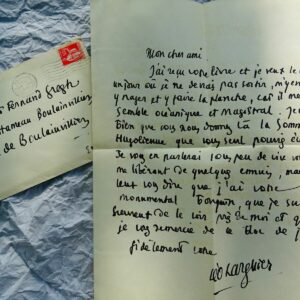 Fernand Gregh
Hameau Boulainvilliers
de Boulainvilliers
Mon cher ami
J'ai reçu votre livre et je veux le
un jour où je ne devrai pas sortir, m'y
y nager et y faire la planche, car il me
semble océanique et magistral. Je
bien que vous nous donnez là la Somme
Hugolienne que vous seul pouviez
Je vous en parlerai
me libérant de quelques ennuis, mais
veux vous dire que j'ai votre
monumental bouquin, que je suis
heureux de le voir près de moi et que
je vous remercie de ce bloc de
fidèlement vôtre
Léo Larguier